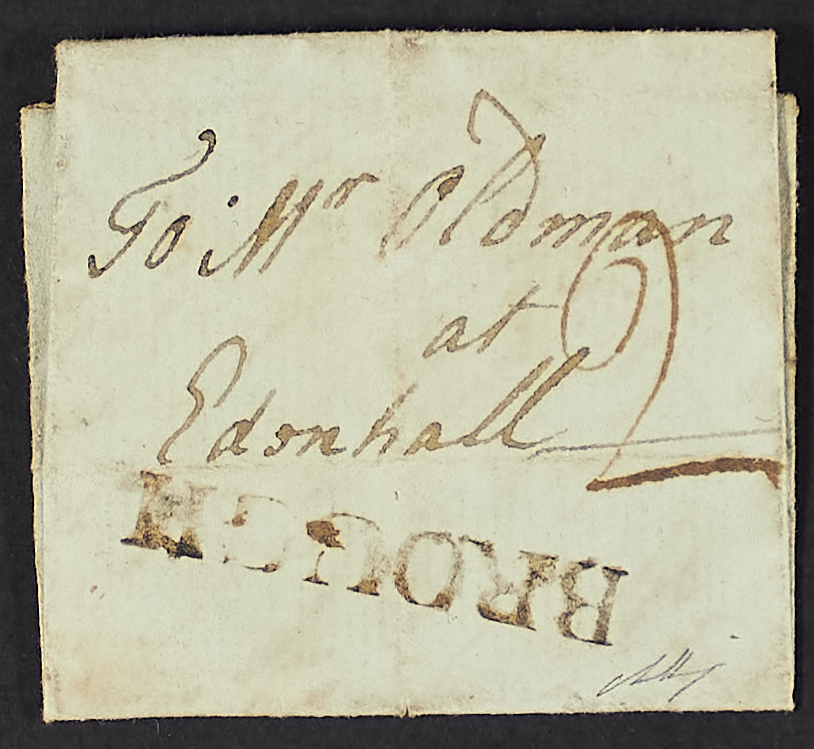 To Mr Oldman
at
Edonhall
2
BROUGH